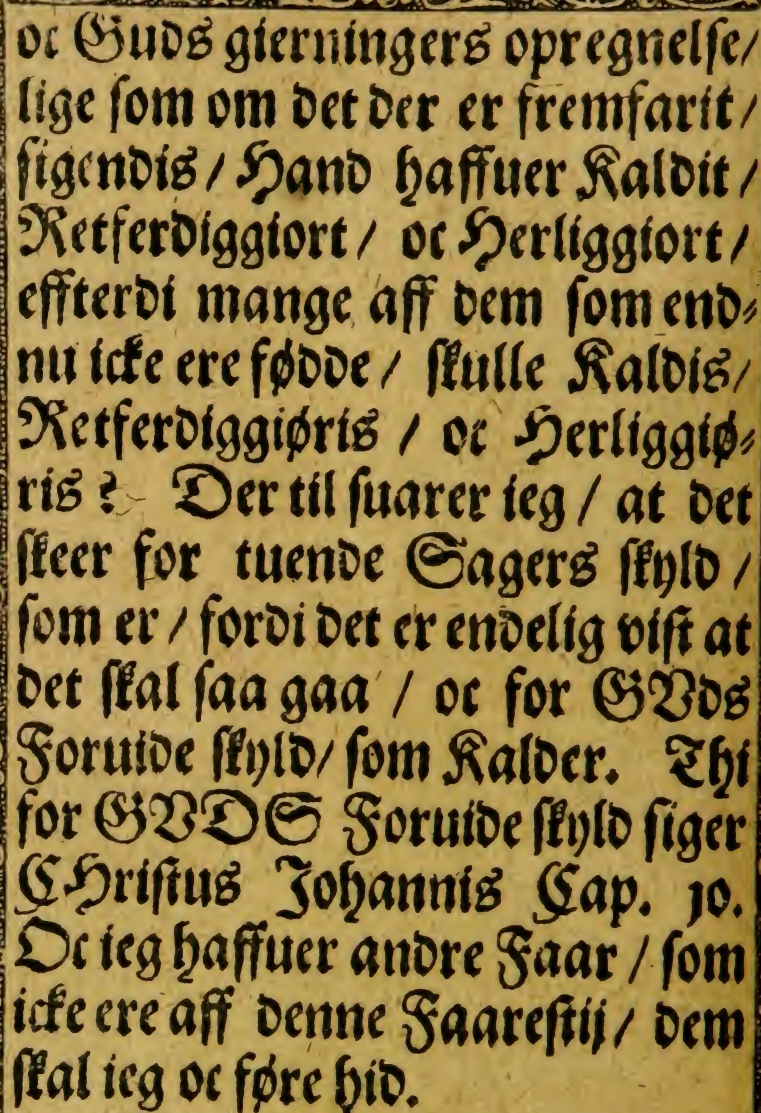 oc Guds gierningers opregnelse/
lige som om det der er fremfarit/
sigendis / Hand haffuer Kaldit /
Retferdiggiort / oc Herliggiort/
effterdi mange aff dem som end⸗
nu icke ere fødde / skulle Kaldis/
Retferdiggiøris / oc Herliggiø⸗
ris? Der til suarer ieg / at det
skeer for tuende Sagers skyld /
som er / fordi det er endelig vist at
det skal saa gaa / oc for GVds
Foruide skyld/ som Kalder. Thi
for GVDS Foruide skyld siger
CHristus Johannis Cap. 10.
Oc ieg haffuer andre Faar / som
icke ere aff denne Faarestij/ dem
skal ieg oc føre hid.